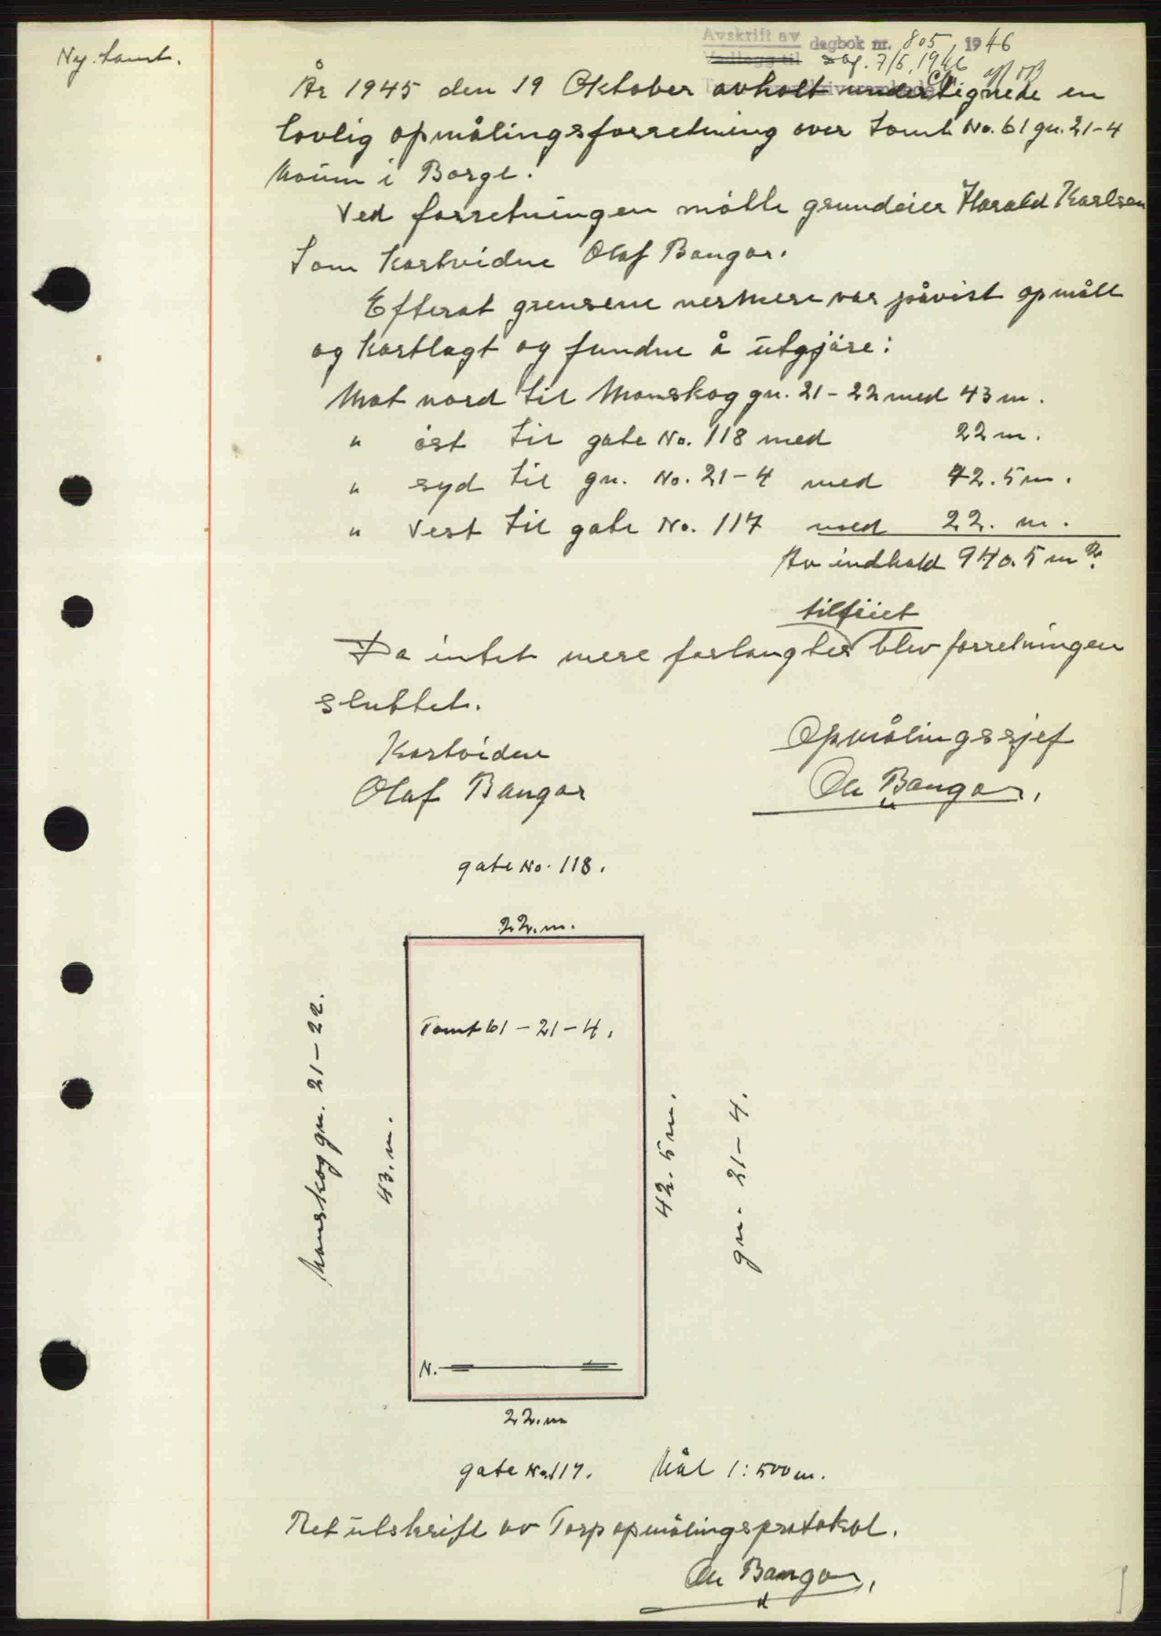 Avskrift av dagbok nr. 805 1946
Vedlegg til Dag. 7/5.1946
Ny tomt.
År 1945 den 19 Oktober avholt undertignede en
lovlig opmålingsforretning over tomt No. 61 gn. 21-4
Moum i Borge.
Ved forretningen møtte grundeier Harald Karlsen
Som kartvidne Olaf Bangar.
Efterat grensene nermere var påvist opmålt
og kartlagt og fundne å utgjøre:
Mot nord til Monskog gn. 21-22 med 43 m.
" øst til gate No. 118 med 22 m.
" syd til gn. No. 21-4 med 42.5 m.
" Vest til gate No. 117 med 22. m.
Av indhold 940.5 m².
tilføiet
Da intet mere forlangtes blev forretningen
sluttet.
Kartvidne
Olaf Bangar
Opmålingssjef
Ole Bangar,
gate No. 118.
22. m.
Tomt 61-21-4.
Monskog gn. 21-22.
43. m.
42.5 m.
gn. 21-4.
N.
22. m
gate No 117. Mål 1:500 m.
Ret utskrift av Torp opmålingsprotokol.
Ole Bangar,